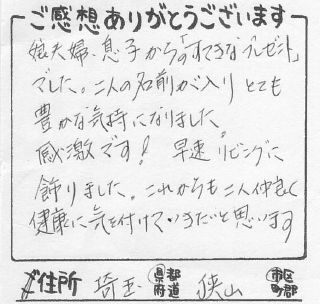 ご感想ありがとうございます
娘夫婦、息子からの「すてきなプレゼント」
でした。二人の名前が入り とても
豊かな気持になりました
感激です! 早速リビングに
飾りました。これからも二人仲良く
健康に気を付けていきたいと思います
ご住所 埼玉 都道府県 狭山 市区町郡